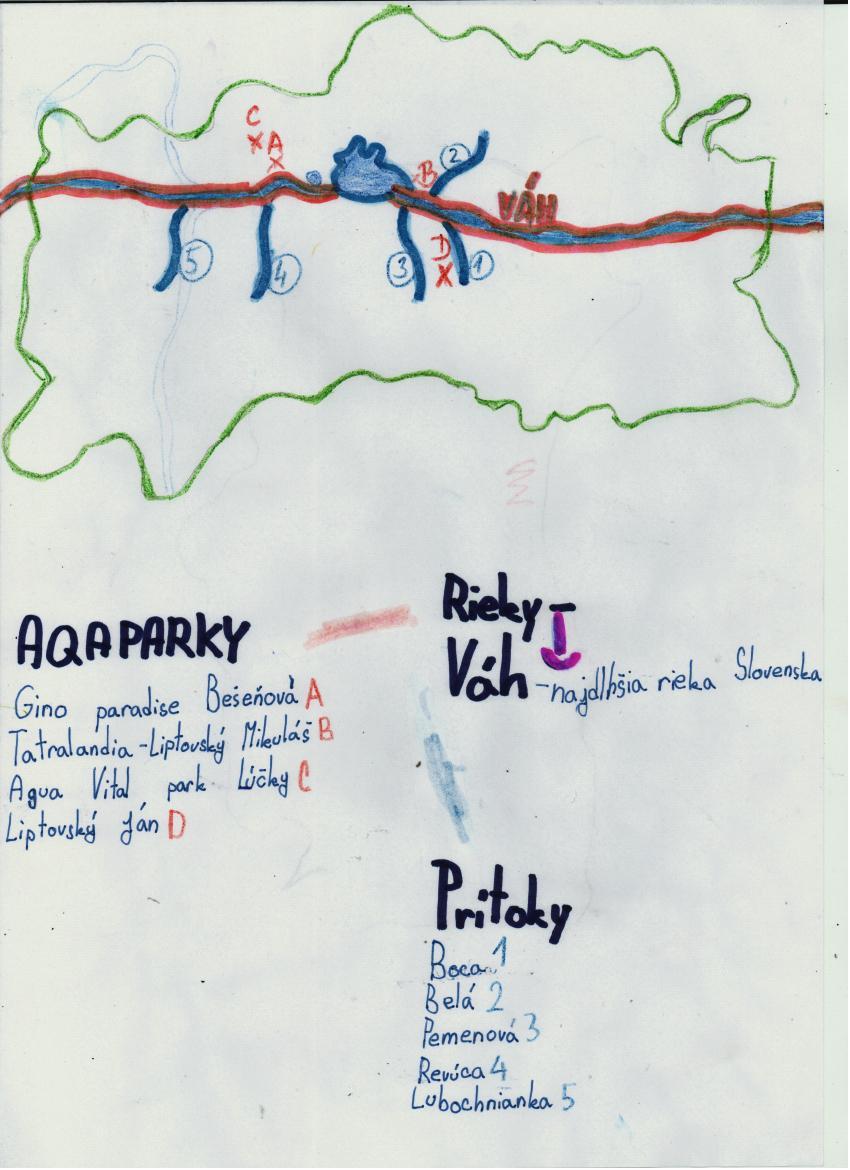 C
A
B
2
VÁH
5
4
3
D
1
AQAPARKY
Gino paradise Bešeňová A
Tatralandia - Liptovský Mikuláš B
Agua Vital park Lúčky C
Liptovský Ján D
Rieky -
Váh - najdlhšia rieka Slovenska
Prítoky
Boca 1
Belá 2
Pemenová 3
Revúca 4
Lubochnianka 5